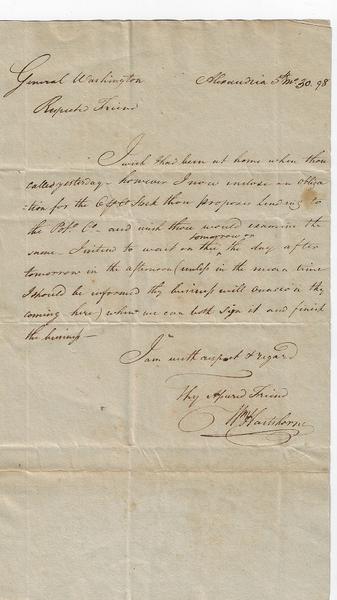 General Washington Alexandria 5th Mo. 30. 98
Respected Friend
I wish I had been at home when thou
called yesterday - however I now inclose an obliga
tion for the 6 Stock thou proposes lending to
the Poto. Co. and wish thou would examine the
tomorrow or
same - I intend to wait on thee the day after
tomorrow in the afternoon (unless in the mean time
I should be informed thy business will occasion thy
coming here) when we can both sign it and finish
the business -
I am with respect & regard
Thy Assured Friend
Wm Hartshorne